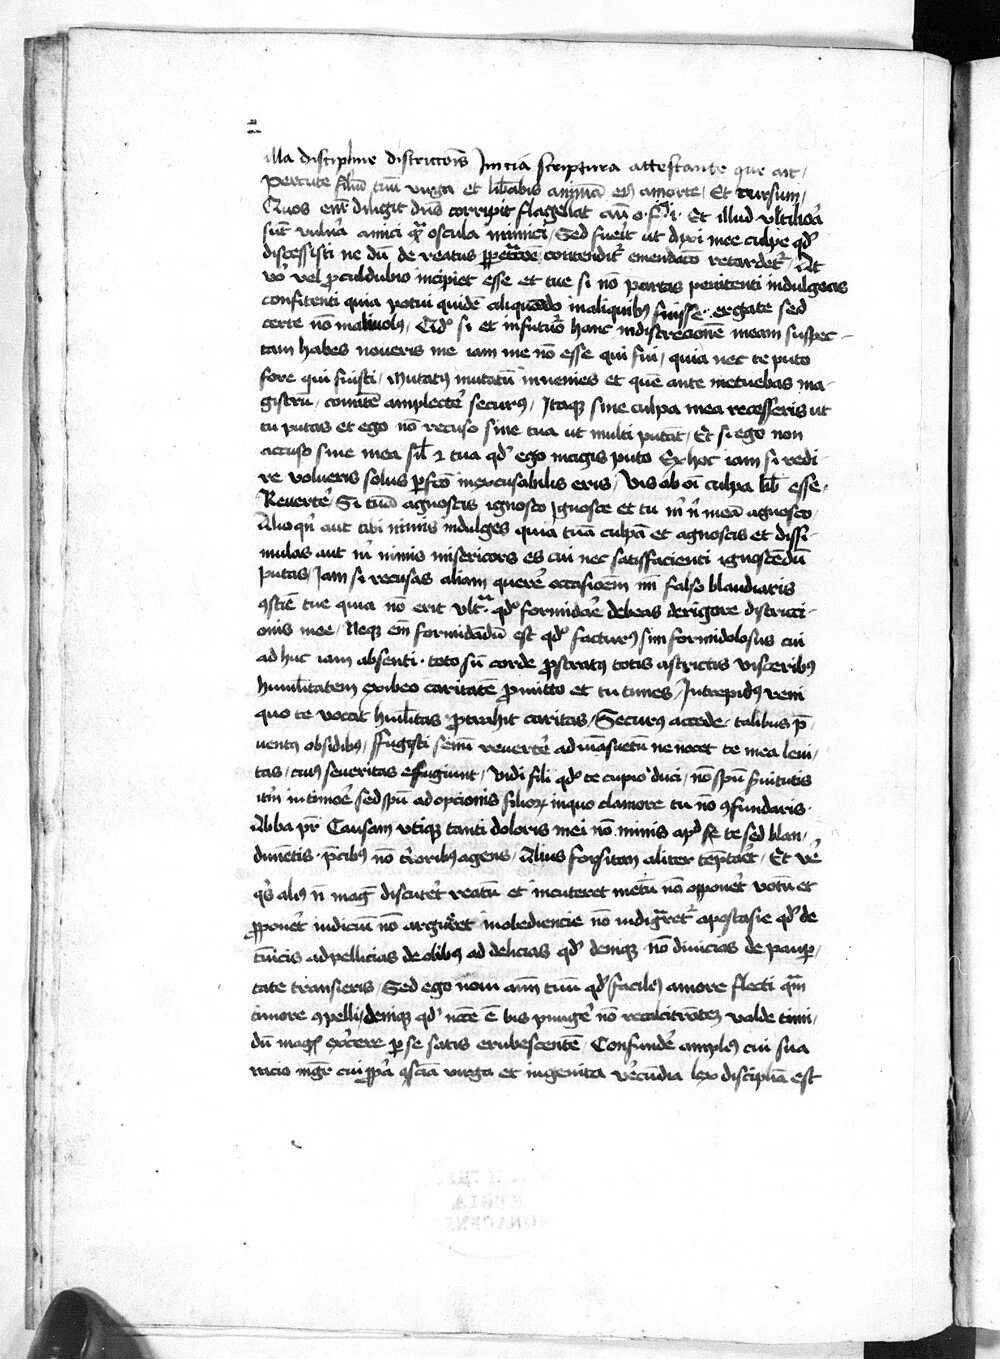 illa discipline districtiōis Inicia scriptura attestante que ait /
Percute filiū tuū virga et lib̄abis animā eiꝰ amorte / Et rursum /
Quos em̄ diligit dn̄s corripit flagellat aūt oēm filiū. Et illud vtiliora
sūt vulnera amici qͣ oscula inimici / Sed fuerit ut dixi mee culpe qd'
discessisti ne dū de reatus contendit̄ emendatio retardet̄ / At
vo vel proculdubio incipiet esse et tue si nō parcas penitenti indulgeas
confitenti quia potui quidē aliquando inaliquibꝰ fuisse erga te sed
certe nō malivolꝰ / Qd' si et infuturū hanc indiscrecionē meam suspec-
tam habes noveris me iam me nō esse qui fui / quia nec te puto
fore qui fuisti / Mutatꝰ mutatū invenies et quē ante metuebas ma-
gistrū / comitē amplectere securꝰ / Itaqꝫ sine culpa mea recesseris ut
tu putas et ego nō recuso sine tua ut multi putāt / Et si ego non
accuso sive mea sil' ⁊ tua qd' ego magis puto Ex hoc iam si redi-
re volueris solus pfcō inexcusabilis eris / Vis ab oī culpa lib' esse /
Revertere / Si tuā agnoscis ignosco Ignosce et tu m̄ n̄ meā agnosco /
Alioqn̄ aut tibi nimis indulges quia tuā culpā et agnoscis et dissi-
mulas aut m̄ nimis misericors es cui nec satisfacienti ignoscēdū
putas / Iam si recusas aliam querere occasioēm m̄ falso blandiaris
ꝯsciē tue quia nō erit ultͣ qd' formidare debeas de rigore districti-
onis mee / Neqꝫ em̄ formidādū est qd' facturꝰ sim formidolosus cui
ad huc iam absenti toto sū corde prostratꝰ totis astrictis visceribꝰ
humilitatem exibeo caritatē promitto et tu times / Intrepidꝰ veni
quo te vocat humilitas protrahit caritas / Securꝰ accede talibus p̄-
ventꝰ obsidibꝰ / Fugisti sevū revertere ad māsuetū ne nocet te mea leni-
tas / cuiꝰ severitas effugiunt / Vidi fili qd' te cupio duci / nō spū s̄vitutis
itm̄ in timore sed spū adopcionis filiorꝫ inquo clamore tu nō ꝯfundaris
Abba pr̄ Causam vtiqꝫ tanti doloris mei nō minis apd te sed blan-
dimētis p̄cibꝰ nō t̄roribꝰ agens / Alius forsitan aliter tēptaret / Et vē
qͥs aliꝰ n̄ magꝭ discuteret reatū et incuteret metū nō opponeret votū et
proponeret iudiciū nō argueret inobediencie nō indignaret̄ apostasie qd' de
tunicis ad pellicias de olibꝰ ad delicias qd' deniqꝫ nō divicias de paup̱-
tate transieris / Sed ego novi aīm tuū qd' faciliꝰ amore flecti qͣm
timore ꝯpelli / deniqꝫ qd' n̄cē ē bis pungere nō recalcitrātem valde timi-
dū magꝭ exterrere p se satis erubescentē Confundere ampliꝰ cui sua
racio mgr̄ cui propria ꝯscīa virga et ingenita verecūdia lex discipline est